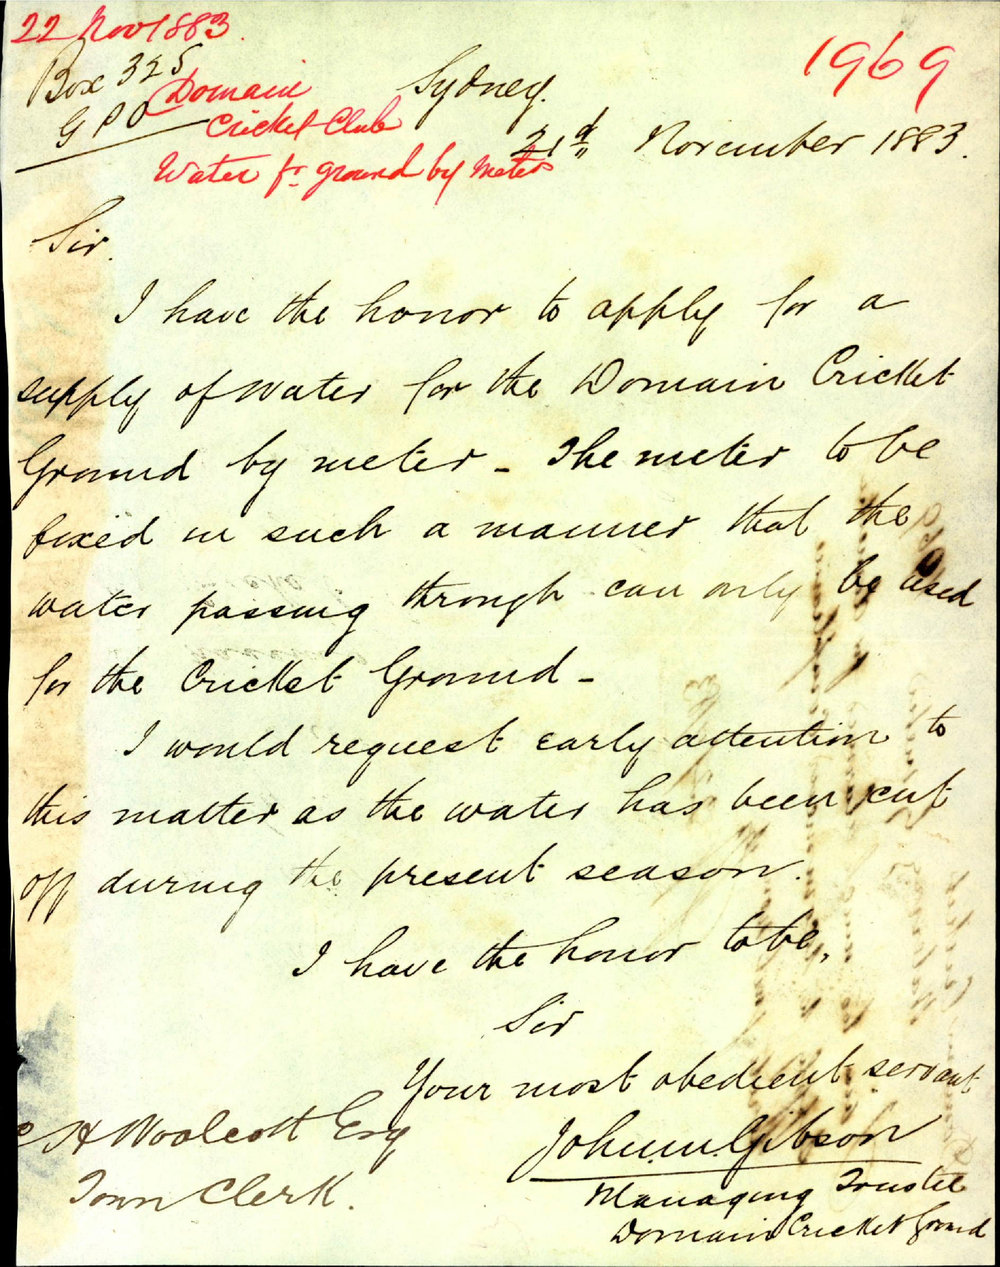 22 Nov 1883.
1969
Box 325
G P O
Domain
Cricket Club
Water fr ground by meter
Sydney.
21st November 1883.
Sir.
I have the honor to apply for a
supply of Water for the Domain Cricket
Ground by meter - The meter to be
fixed in such a manner that the
water passing through can only be used
for the Cricket Ground -
I would request early attention to
this matter as the water has been cut
off during the present season.
I have the honor to be,
Sir
Your most obedient servant
John Gibson
Managing Trustee
Domain Cricket Ground
C H Woolcott Esq
Town Clerk.